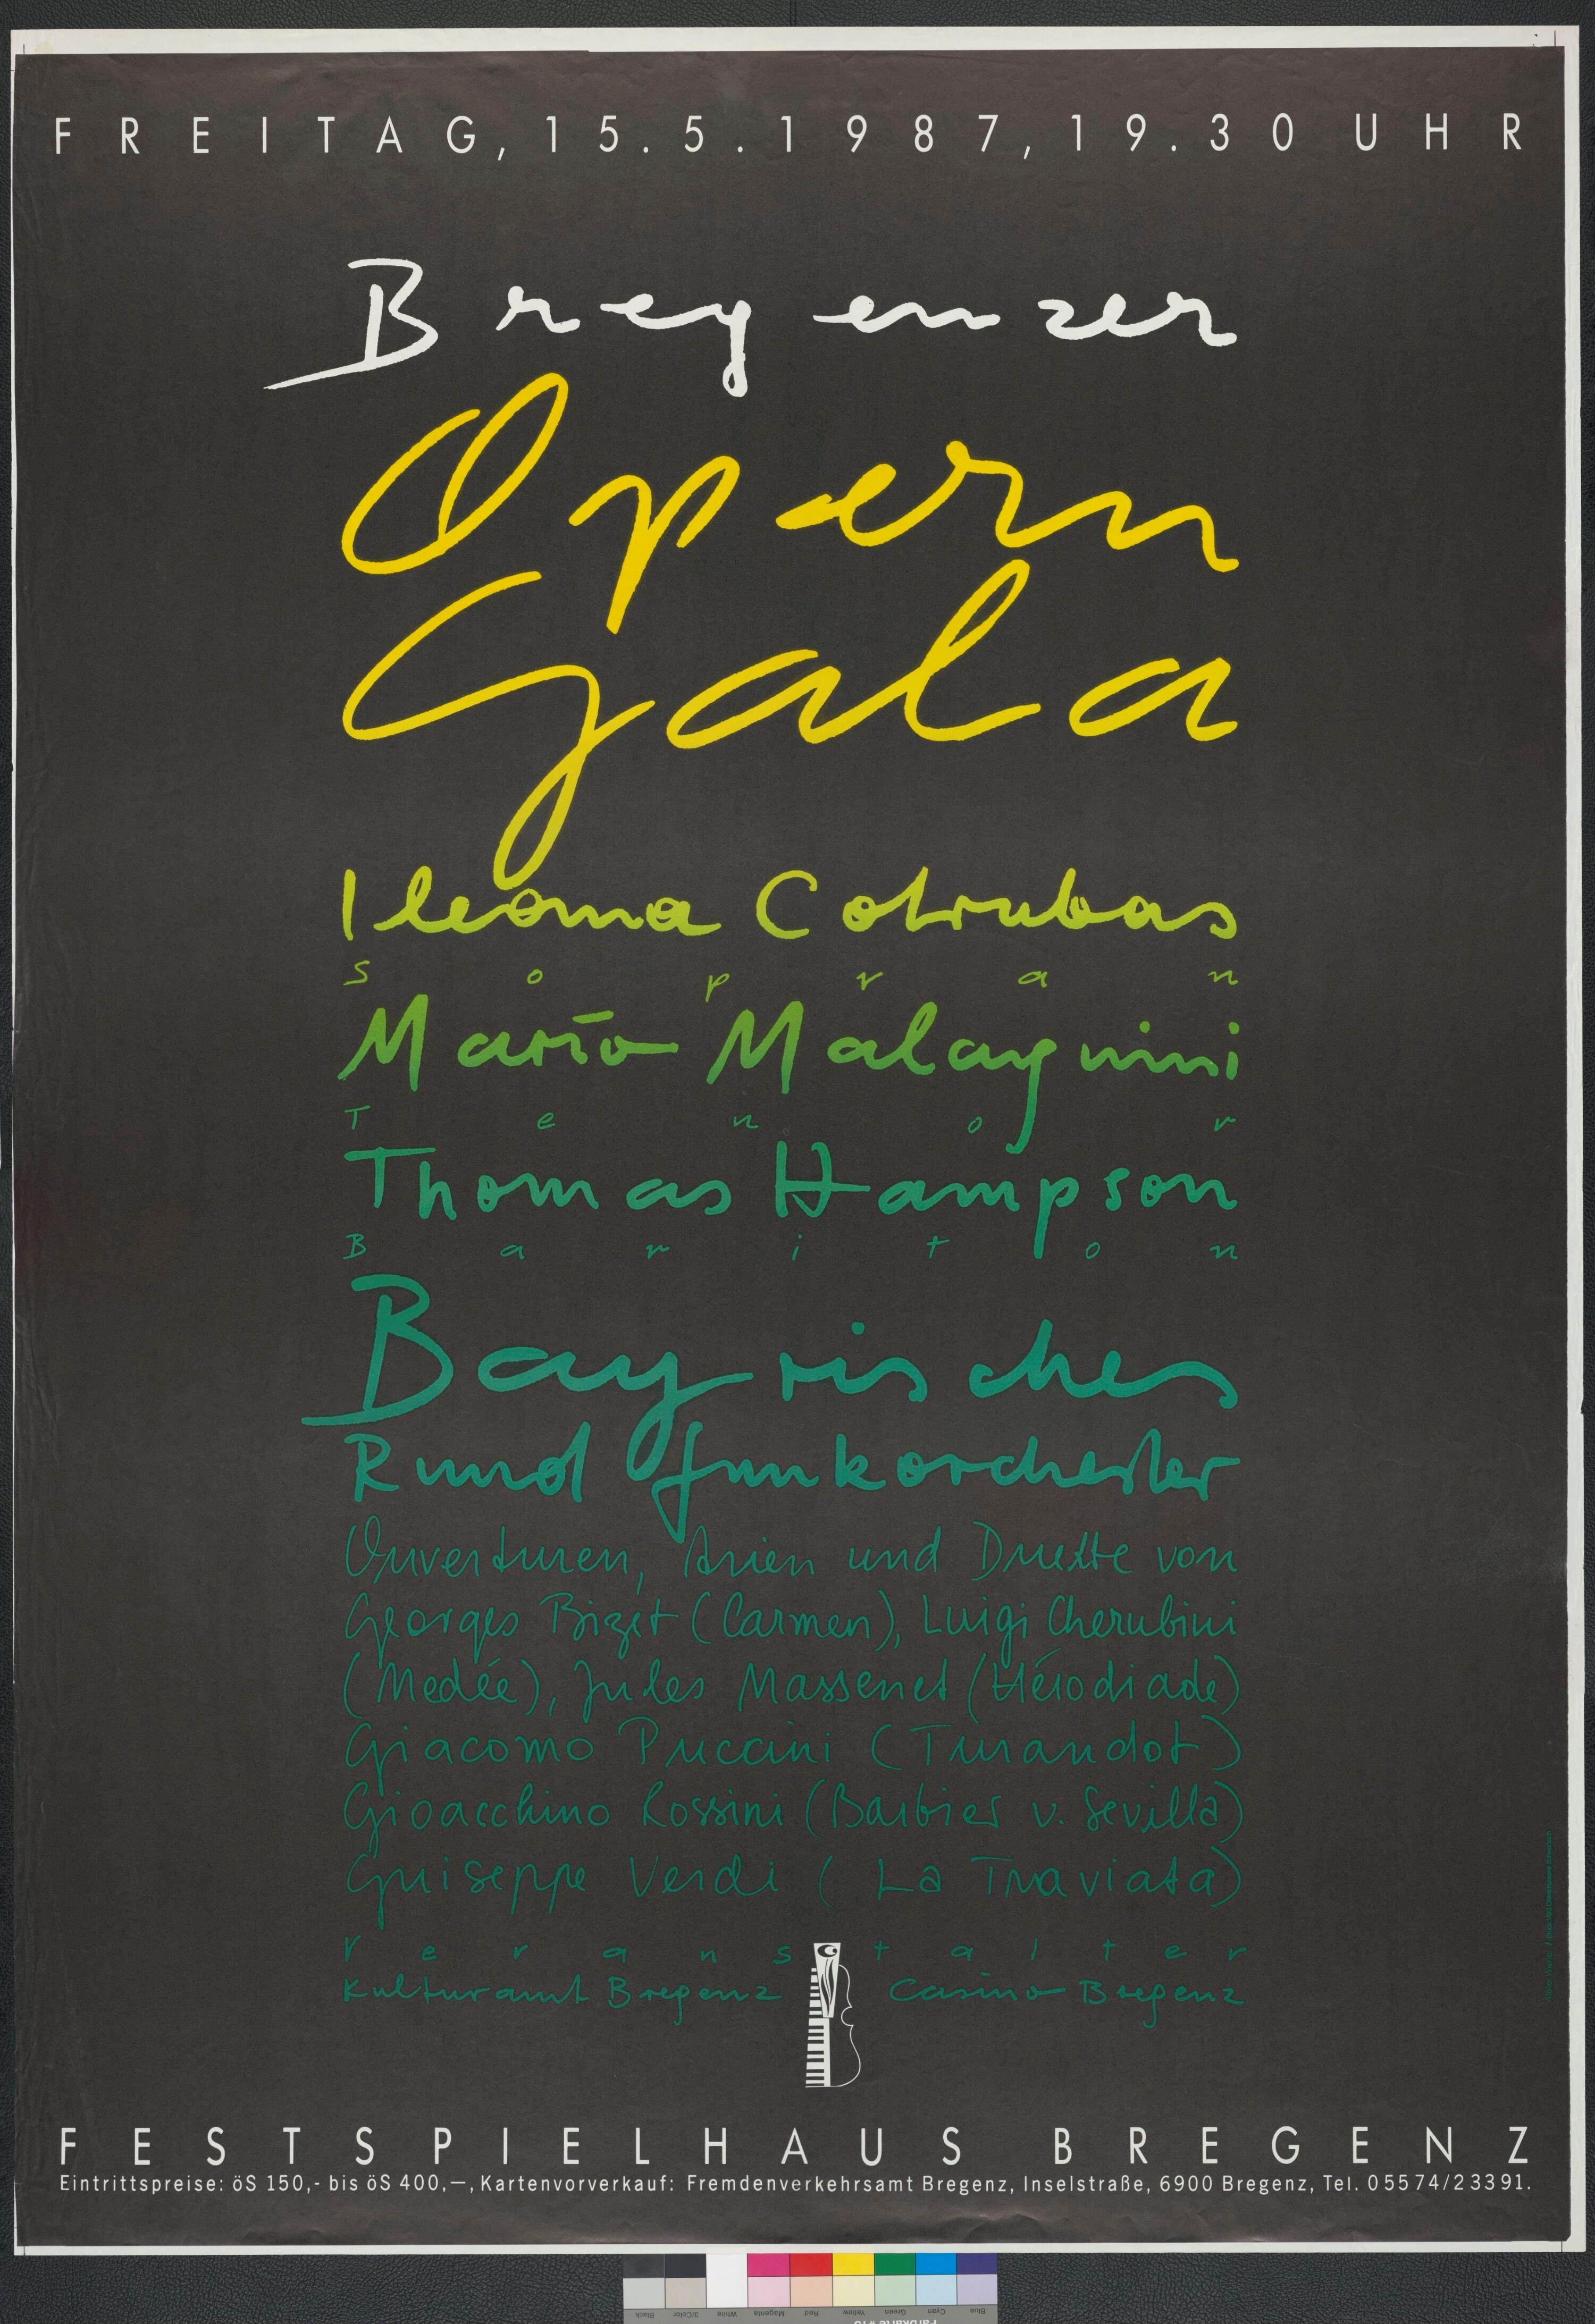 FREITAG, 15.5.1987, 19.30 UHR
Bregenzer
Opern
Gala
Ileana Cotrubas
Sopran
Mario Malagnini
Tenor
Thomas Hampson
Bariton
Bayrisches
Rundfunkorchester
Ouverturen, Arien und Duette von
Georges Bizet (Carmen), Luigi Cherubini
(Medée), Jules Massenet (Hérodiade)
Giacomo Puccini (Turandot)
Gioacchino Rossini (Barbier v. Sevilla)
Guiseppe Verdi (La Traviata)
Veranstalter
Kulturamt Bregenz Casino Bregenz
FESTSPIELHAUS BREGENZ
Eintrittspreise: öS 150,- bis öS 400,—, Kartenvorverkauf: Fremdenverkehrsamt Bregenz, Inselstraße, 6900 Bregenz, Tel. 05574/23391.
Black 3/Color White Magenta Red Yellow Green Cyan Blue